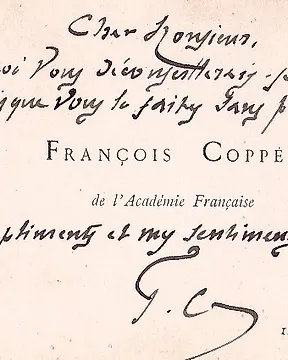 Cher Monsieur,
oi vous déconseillerais-
sque vous le faites sans p
FRANÇOIS COPPÉ
de l'Académie Française
pliments et mes sentiment
F. C